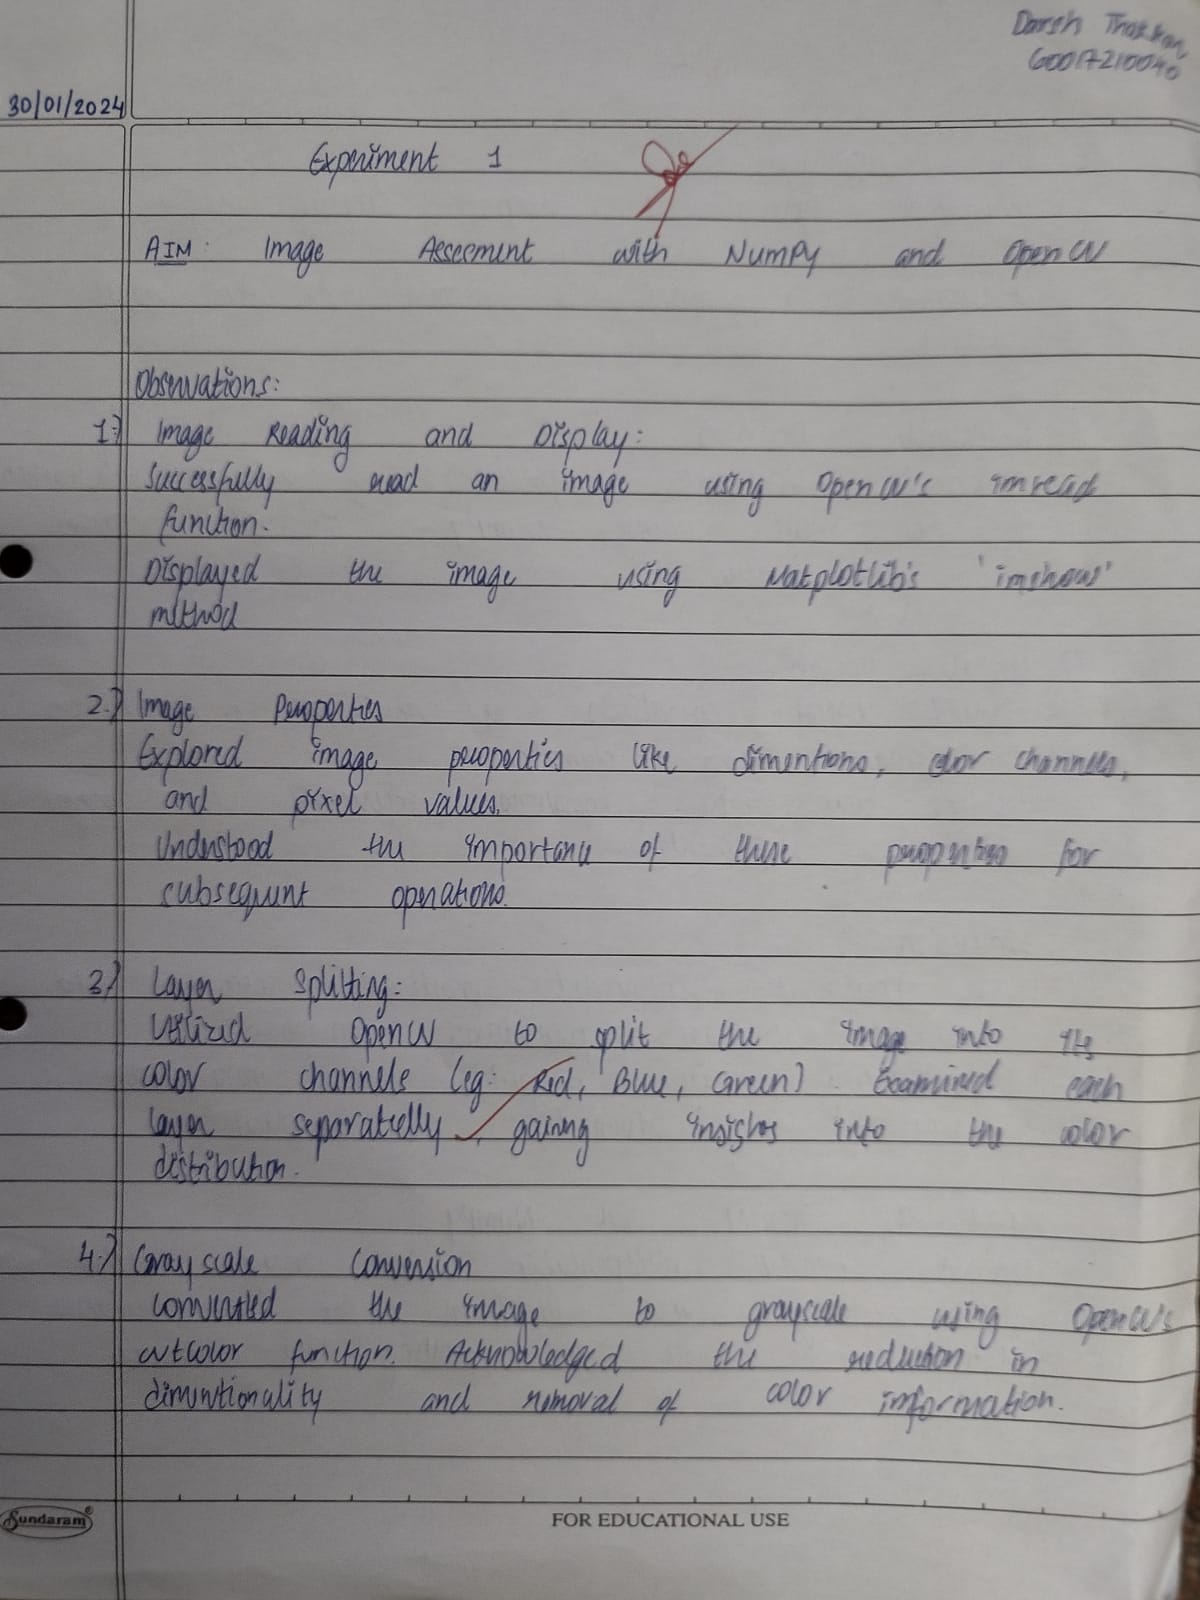 Darsh Thakkar
60017210040
30/01/2024
Experiment 1
AIM: Image Assesment with NumPy and OpenCV
Observations:
1.) Image Reading and Display:
Successfully read an image using OpenCV's imread
function.
Displayed the image using Matplotlib's 'imshow'
method
2.) Image Properties
Explored image properties like dimentions, color channels,
and pixel values.
Understood the importance of these properties for
subsequent operations.
3.) Layer Splitting:
Utilized OpenCV to split the image into its
color channels (eg: Red, Blue, Green) Examined each
layer separatelly, gaining insights into the color
distribution.
4.) Grayscale Conversion
Converted the image to grayscale using OpenCV's
cvtcolor function. Acknowledged the reduction in
dimentionality and removal of color information.
Sundaram
FOR EDUCATIONAL USE